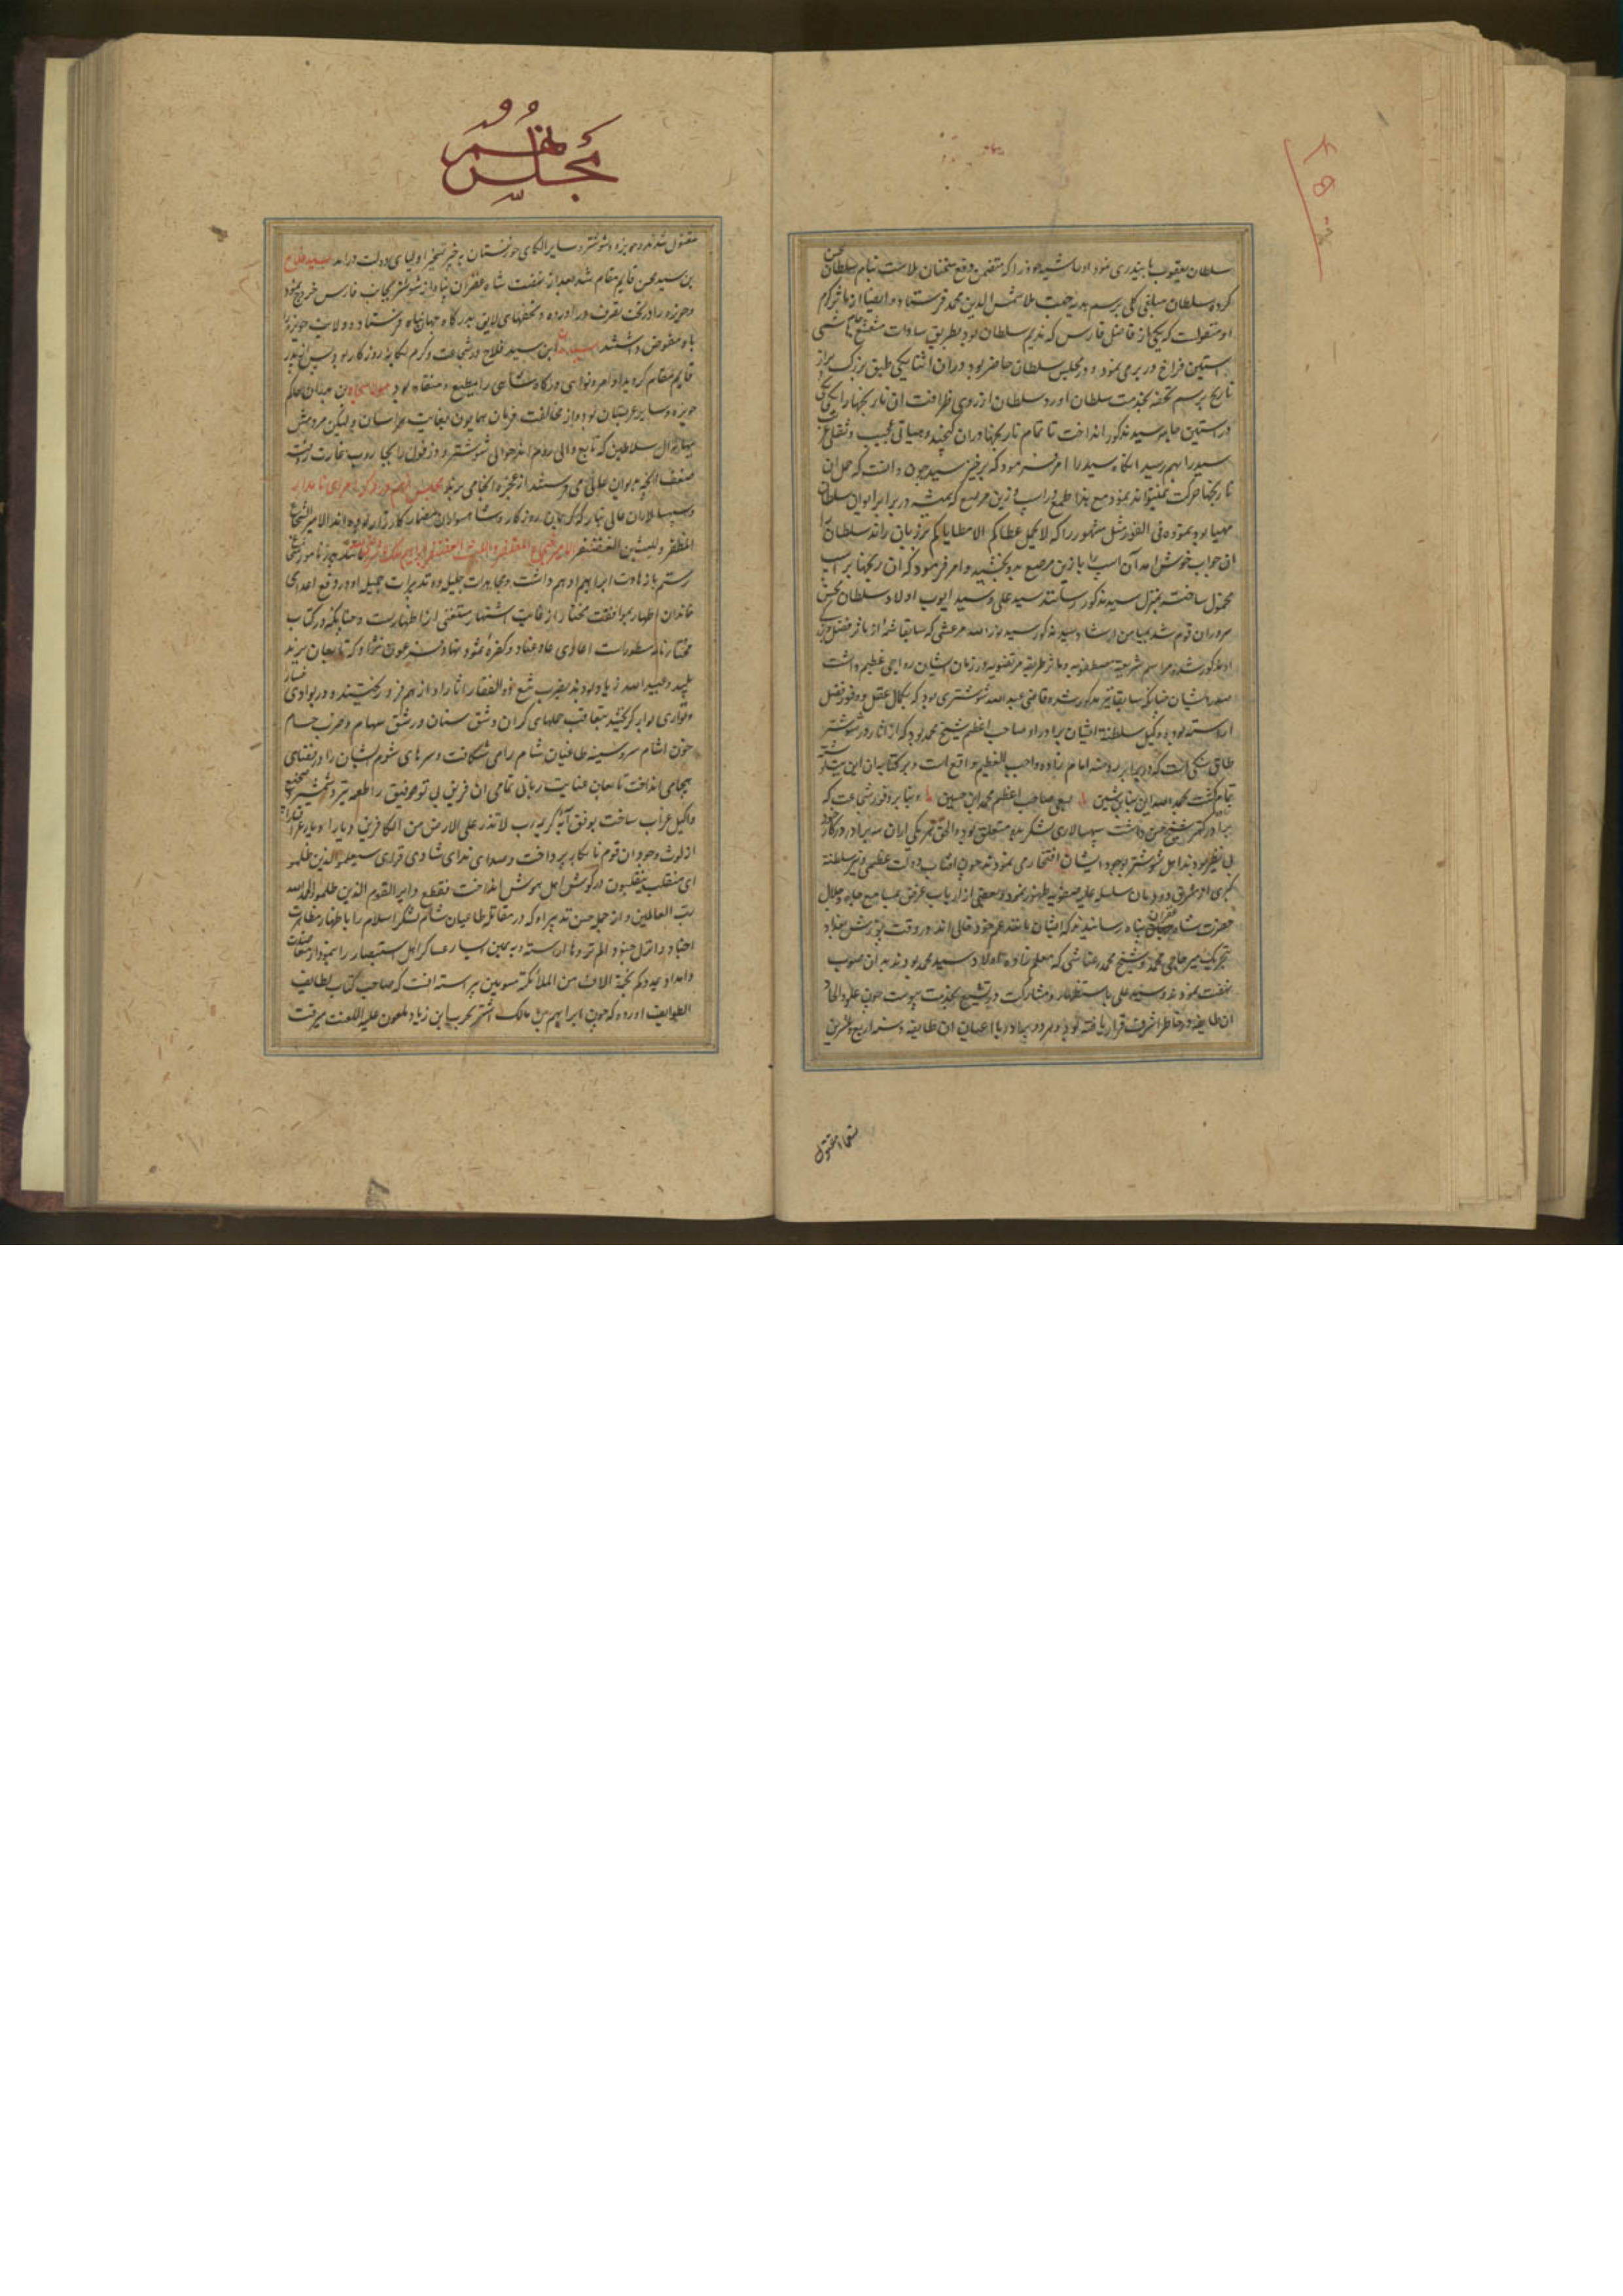 سلطان یعقوب بایندری نمود او حاشیه خود را که متضمن دفع سخنان بلاست بنام سلطان محسن
کرده سلطان مبلغی کلی برسم هدیه جهت ملا شمس الدین محمد فرستاد و ایضا از مآثر کرم
او منقولست که یکی از افاضل فارس که ندیم سلطان بود بطریق سادات مشعشع جامه
استین فراخ در بر می نمود و در مجلس سلطان حاضر بود در ان اثنا یکی طبق بزرک پر از
نارنج برسم تحفه بخدمت سلطان اورد و سلطان از روی ظرافت ان نارنجها را یکی یکی
در استین جامه سید مذکور انداخت تا تمام نارنجها در ان کنجید و هیاتی عجیب و ثقلی
سید را بهم رسید انکاه سید را امر فرمود که برخیز سید چون دانست که حمل ان
نارنجها حرکت نمیتواند نمود مع هذا طمع در اسپ و زین مرصع که همیشه در برابر ایوان سلطان
مهیا بود نموده فی الفور مثل مشهور را که لا یحمل عطاکم الا مطایاکم بر زبان راند سلطان را
ان جواب خوش امد آن اسپ را با زین مرصع بدو بخشید و امر فرمود که ان نارنجها بر اسپ
محمول ساخته بمنزل سید مذکور رسانند سید علی و سید ایوب اولاد سلطان محسن
سروران قوم شدند بمیامن ارشاد سید مذکور سید نور الله مرعشی که سابقا شمه از مآثر فضل
او مذکور شده مراسم شریعت مصطفویه و مآثر طریقه مرتضویه در زمان ایشان رواجی عظیم داشت
صدر ایشان چنانکه سابقا نیز مذکور شد و قاضی عبد الله شوشتری بود که بکمال عقل و وفور فضل
اراسته بود و وکیل سلطنة ایشان برادر او صاحب اعظم شیخ محمد بود که از اثار او در شوشتر
طاقی سنکی است که در برابر روضه امام زاده واجب التعظیم واقع است و بر کتابه ان این بیت نوشته
تمام کشت بحمد الله این بنای متین بسعی صاحب اعظم محمد ابن حسین و بنا بر وفور شجاعت که
برادر کهتر شیخ حسن داشت سپهسالاری لشکر بدو متعلق بود و الحق هر یکی از ان سه برادر در کار خود
بی نظیر بودند اهل شوشتر بوجود ایشان افتخار می نمودند چون افتاب دولت عظمی و نیر سلطنة
کبری از مشرق دودمان سلسله علیه صفویه ظهور نمود و بعضی از ارباب غرض بمسامع جاه و جلال
حضرت شاه غفران پناه رسانیدند که ایشان باعتقاد عم خود غالی اند در وقت یورش بغداد
بتحریک میر حاجی محمد و شیخ محمد رعناشی که معلم زاده اولاد سید محمد بودند بدان صوب
نهضت نمودند و سید علی باستظهار مشارکت در تشیع بخدمت پیوست چون غلو و الحاد
ان طایفه در خاطر اشرف قرار یافته بود هر دو برادر با اعیان ان طایفه در سنه اربع و عشرین
تسعمائه مقتول
مجلس نهم
مقتول شدند و حویزه و شوشتر و سایر الکای خوزستان بحیز تسخیر اولیای دولت درامد سید فلاح
بن سید محسن قایم مقام شد بعد از نهضت شاه غفران پناه از شوشتر بجانب فارس خروج نمود
و حویزه را در تحت تصرف دراورده و تحفهای لایق بدرکاه جهان پناه فرستاد و ولایت حویزه را
باو مفوض داشتند سید بدران ابن سید فلاح در شجاعت و کرم یکانه روزکار بود پس از پدر
قایم مقام کردید و اوامر و نواهی درکاه شاهی را مطیع و منقاد بود سید سجاد بن بدران حاکم
حویزه و سایر عربستان بود و از مخالفت فرمان همایون بغایت هراسان و لیکن مردمش
بر منوال سلاطین که تابع والی روم اند حوالی شوشتر و دزفول را بجاروب غارت رفته
ضعف انچه بدیوان عالی می فرستند از عجزه انجا می برند مجلس نهم در ذکر امرای نامدار
و سپهسالاران عالی تبار که کرمابان روزکار و شاهسواران مضمار کارزار بوده اند الامیر الشجاع
المظفر و لیث بن الغضنفر الامیر الشجاع المظفر و اللیث الغضنفر ابراهیم مالک
رستم باز هات ابراهیم ادهم داشت و مجاهدات جلیله و تدبیرات جمیله او در دفع اعدای
خاندان اظهار موافقت مختار از غایت اشتهار مستغنی از اظهارست و چنانکه در کتاب
مختار نامه مسطورست اعادی عاد عناد و کفره ثمود نهاد و فرعون نژاد که تابعان یزید
پلید و عبید الله زیاد بودند بضرب تیغ ذو الفقار اثار او از هم فرو ریختند و در بوادی خسار
و تواری بوار کریختند بتعاقب حملهای کران و شق سنان و رشق سهام و ضرب حسام
خون اشام سر و سینه طاغیان شام را می شکافت و سرهای شوم ایشان را در فضای
هیجا می انداخت تا بعون عنایت ربانی تمامی ان فریق بی توفیق را طعمه تیر و شمشیر و
و اکیل غراب ساخت بوفق آیه کریمه رب لا تذر علی الارض من الکافرین دیارا دیار عراق را
از لوث وجود ان قوم نابکار پرداخت و صدای ندای شادی فزای سیعلم الذین ظلموا
ای منقلب ینقلبون در کوش اهل هوش انداخت فقطع دابر القوم الذین ظلموا و الحمد لله
رب العالمین و از جمله حسن تدبیر او که در مقاتله طاغیان شام لشکر اسلام را باظهار مظاهرت
اجناد و انزل جنودا لم تروها اراسته و به یمین و یسار عساکر اهل استبصار را بنمودار
و امداد یمددکم بخمسة الاف من الملائکة مسومین پیراسته انست که صاحب کتاب لطایف
الطوایف اورده که چون ابراهیم بن مالک اشتر بحرب ابن زیاد ملعون علیه اللعنت میرفت